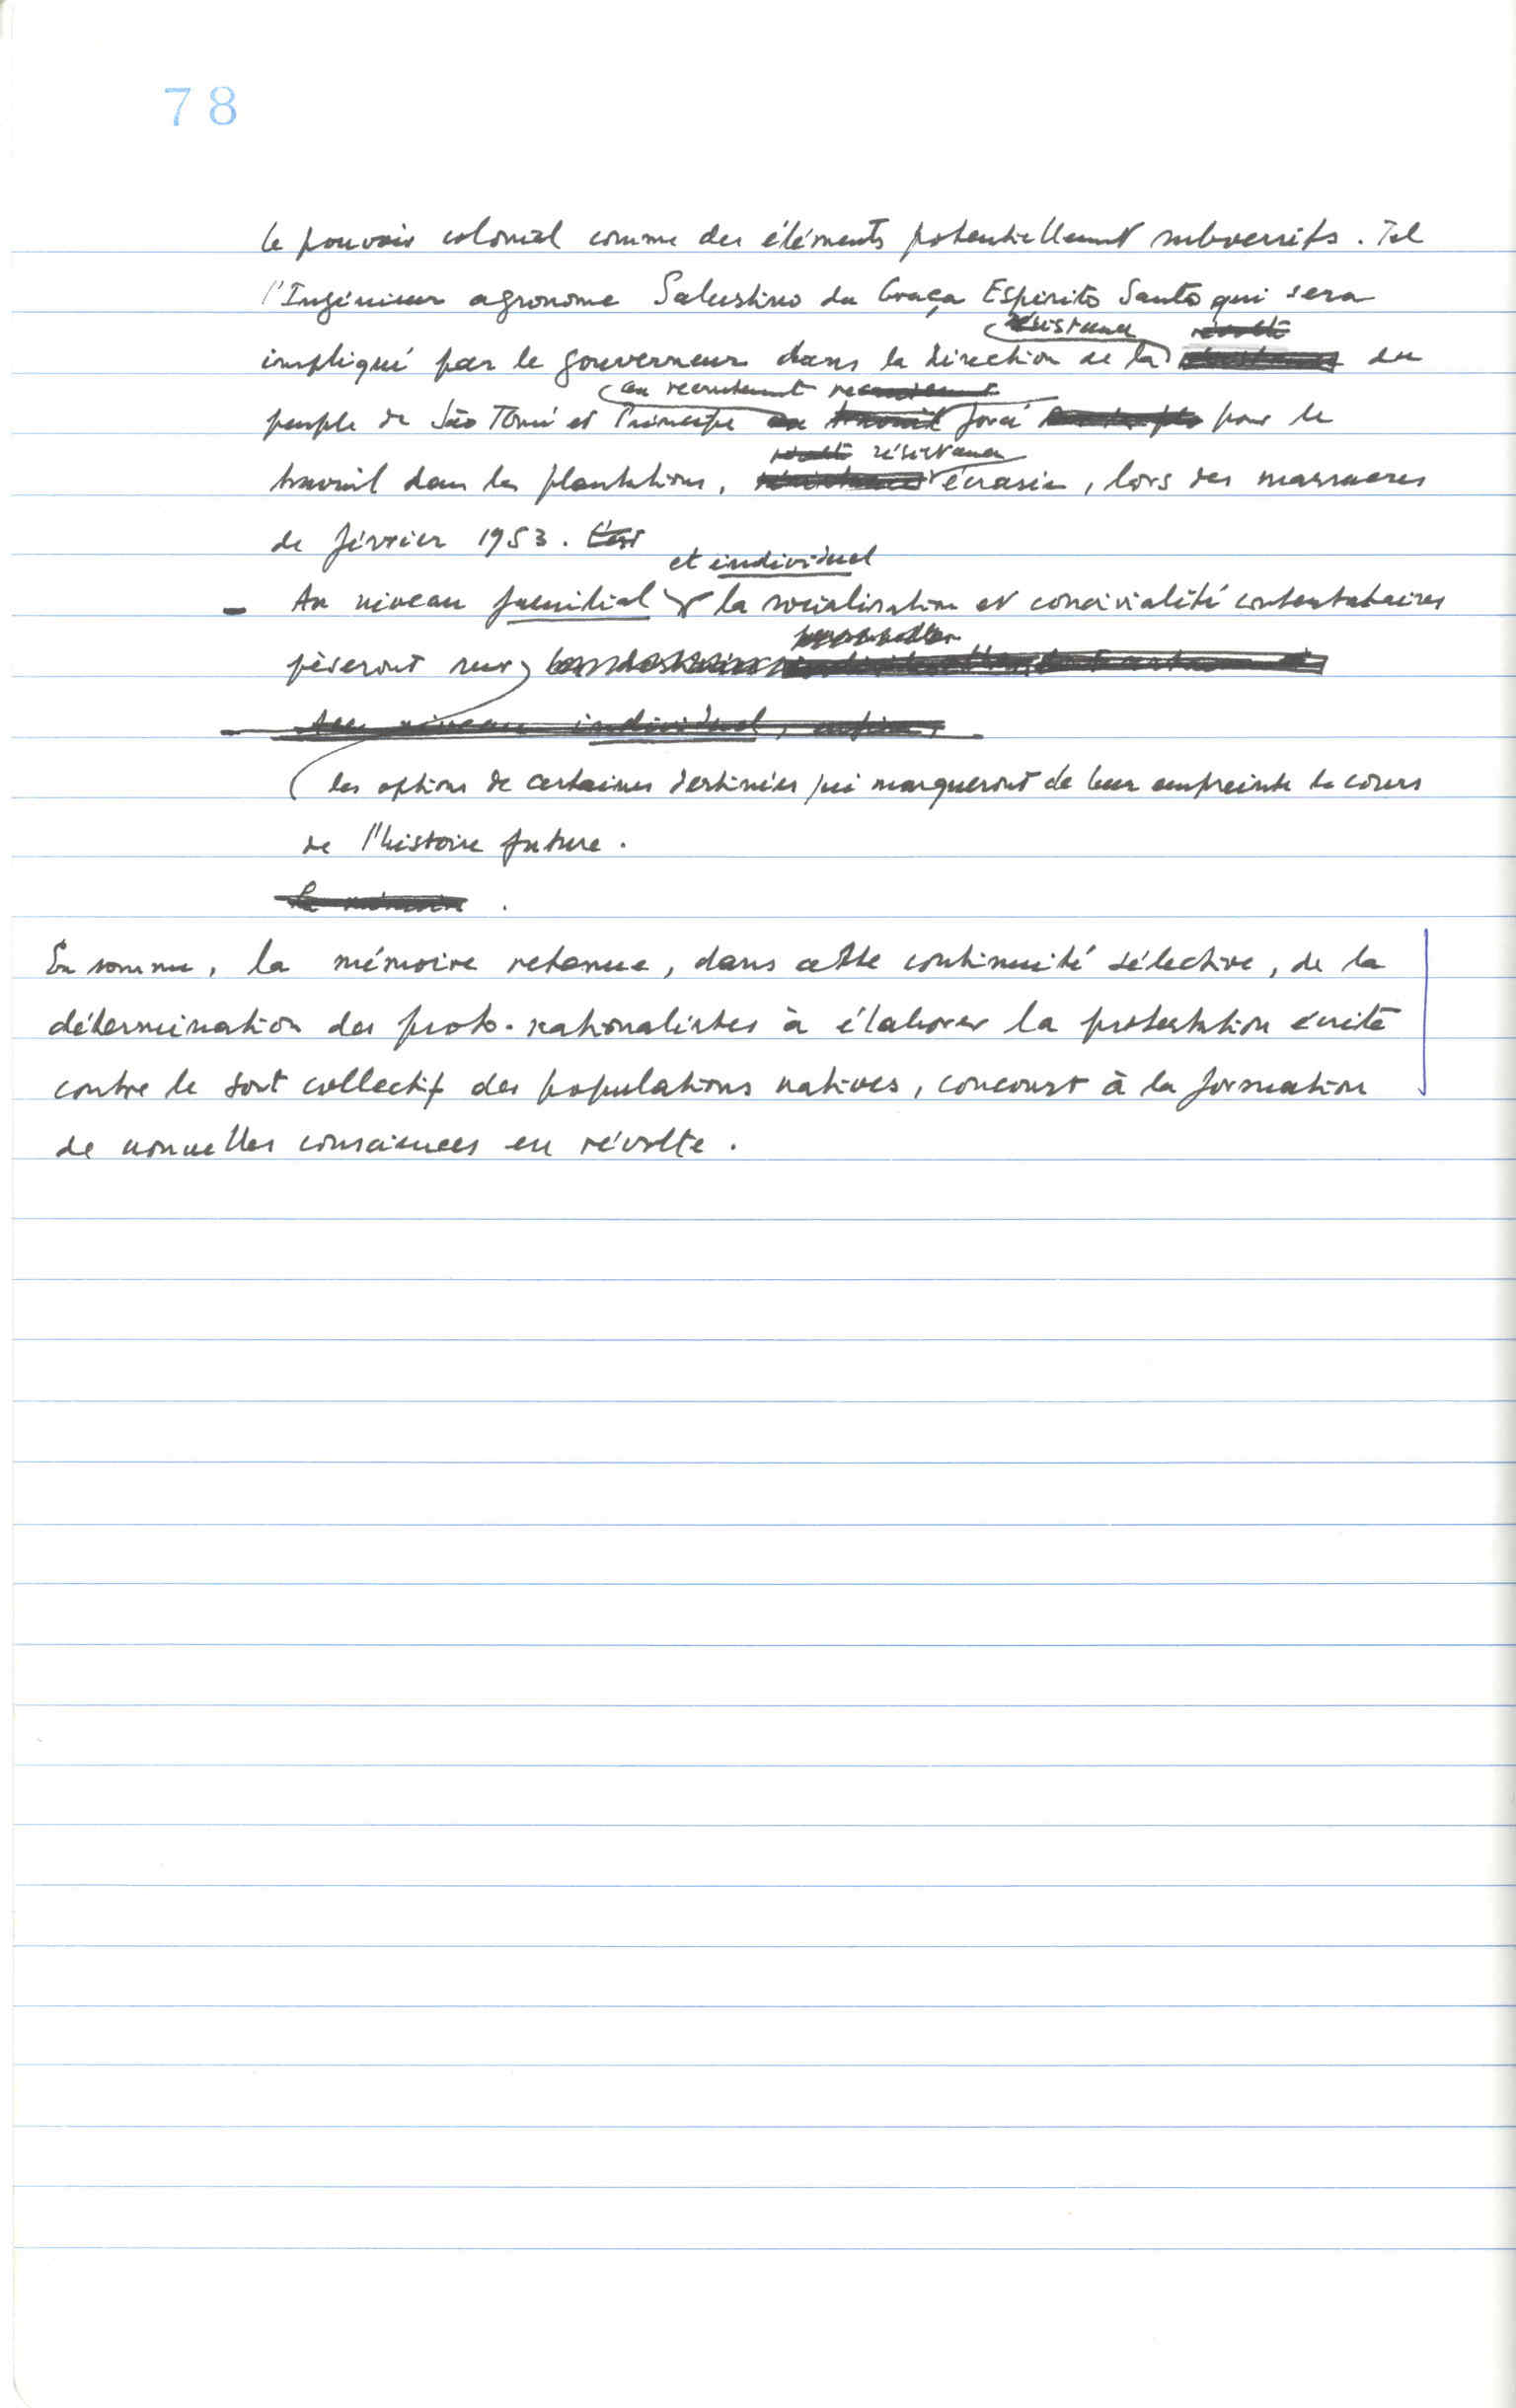 78
le pouvoir colonial comme des éléments potentiellement subversifs. Tel
l'Ingénieur agronome Salustino da Graça Espirito Santo qui sera
résistance révolte
impliqué par le gouverneur dans la direction de la résistance du
au recrutement
peuple de São Tomé et Principe au travail forcé pour le
révolte résistance
travail dans les plantations, résistance écrasée, lors des massacres
de février 1953. C'est
et individuel
- Au niveau familial la socialisation et convivialité contestataires
pèseront sur
- Au niveau individuel, enfin,
les options de certaines destinées qui marqueront de leur empreinte le cours
de l'histoire future.
La mémoire.
En somme, la mémoire retenue, dans cette continuité sélective, de la
détermination des proto-nationalistes à élaborer la protestation écrite
contre le sort collectif des populations natives, concourt à la formation
de nouvelles consciences en révolte.